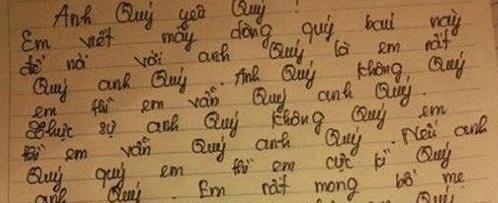 Anh Quý yêu Quý!
Em viết mấy dòng quý baui này
để nói với anh Quý là em rất
Quý anh Quý. Anh Quý không Quý
em thì em vẫn Quý anh Quý.
Thực sự anh Quý không Quý em
thì em vẫn Quý anh Quý. Nếu anh
Quý quý em thì em cực kì Quý
anh Quý. Em rất mong bố mẹ
Quý